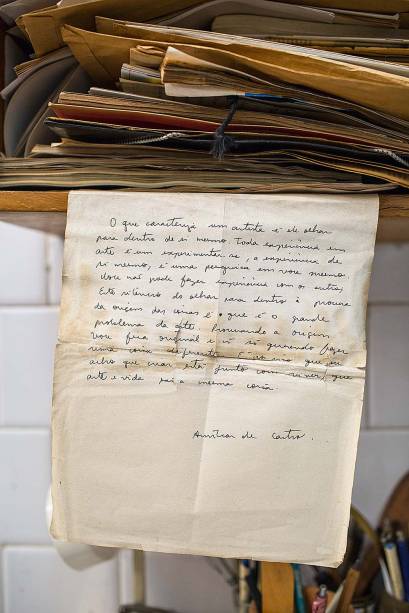 O que caracteriza um artista é ele olhar
para dentro de si mesmo. Toda experiência em
arte é um experimentar-se, a experiência de
si mesmo, é uma pesquisa em você mesmo
você não pode fazer experiência com os outros.
Este silêncio do olhar para dentro à procura
da origem das coisas é o que é o grande
problema da arte. Procurando a origem
você fica original e não só querendo fazer
uma coisa diferente. É por isso que eu
acho que criar está junto com viver, que
arte e vida são a mesma coisa
Amilcar de Castro.